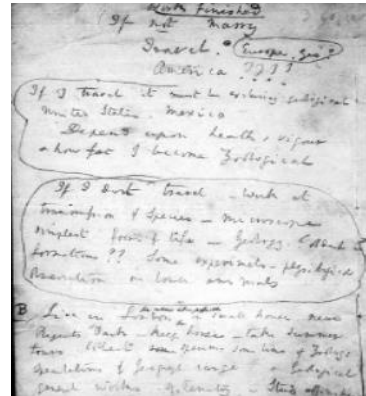 Work finished
If not marry
Travel. Europe, yes?
America ????
If I travel it must be exclusively geological
United States, Mexico
Depend upon health & vigour
& how far I become Zoological
If I dont travel. — Work at
transmission of Species — microscope
simplest forms of life — Geology.
formations ?? Some experiments — physiological
observation on lower animals
B Live in London in small house, near
Regents Park — keep horse — take summer
tours collect specimens some line of Zoolog:
speculations of Geograph. range & Geological
general works